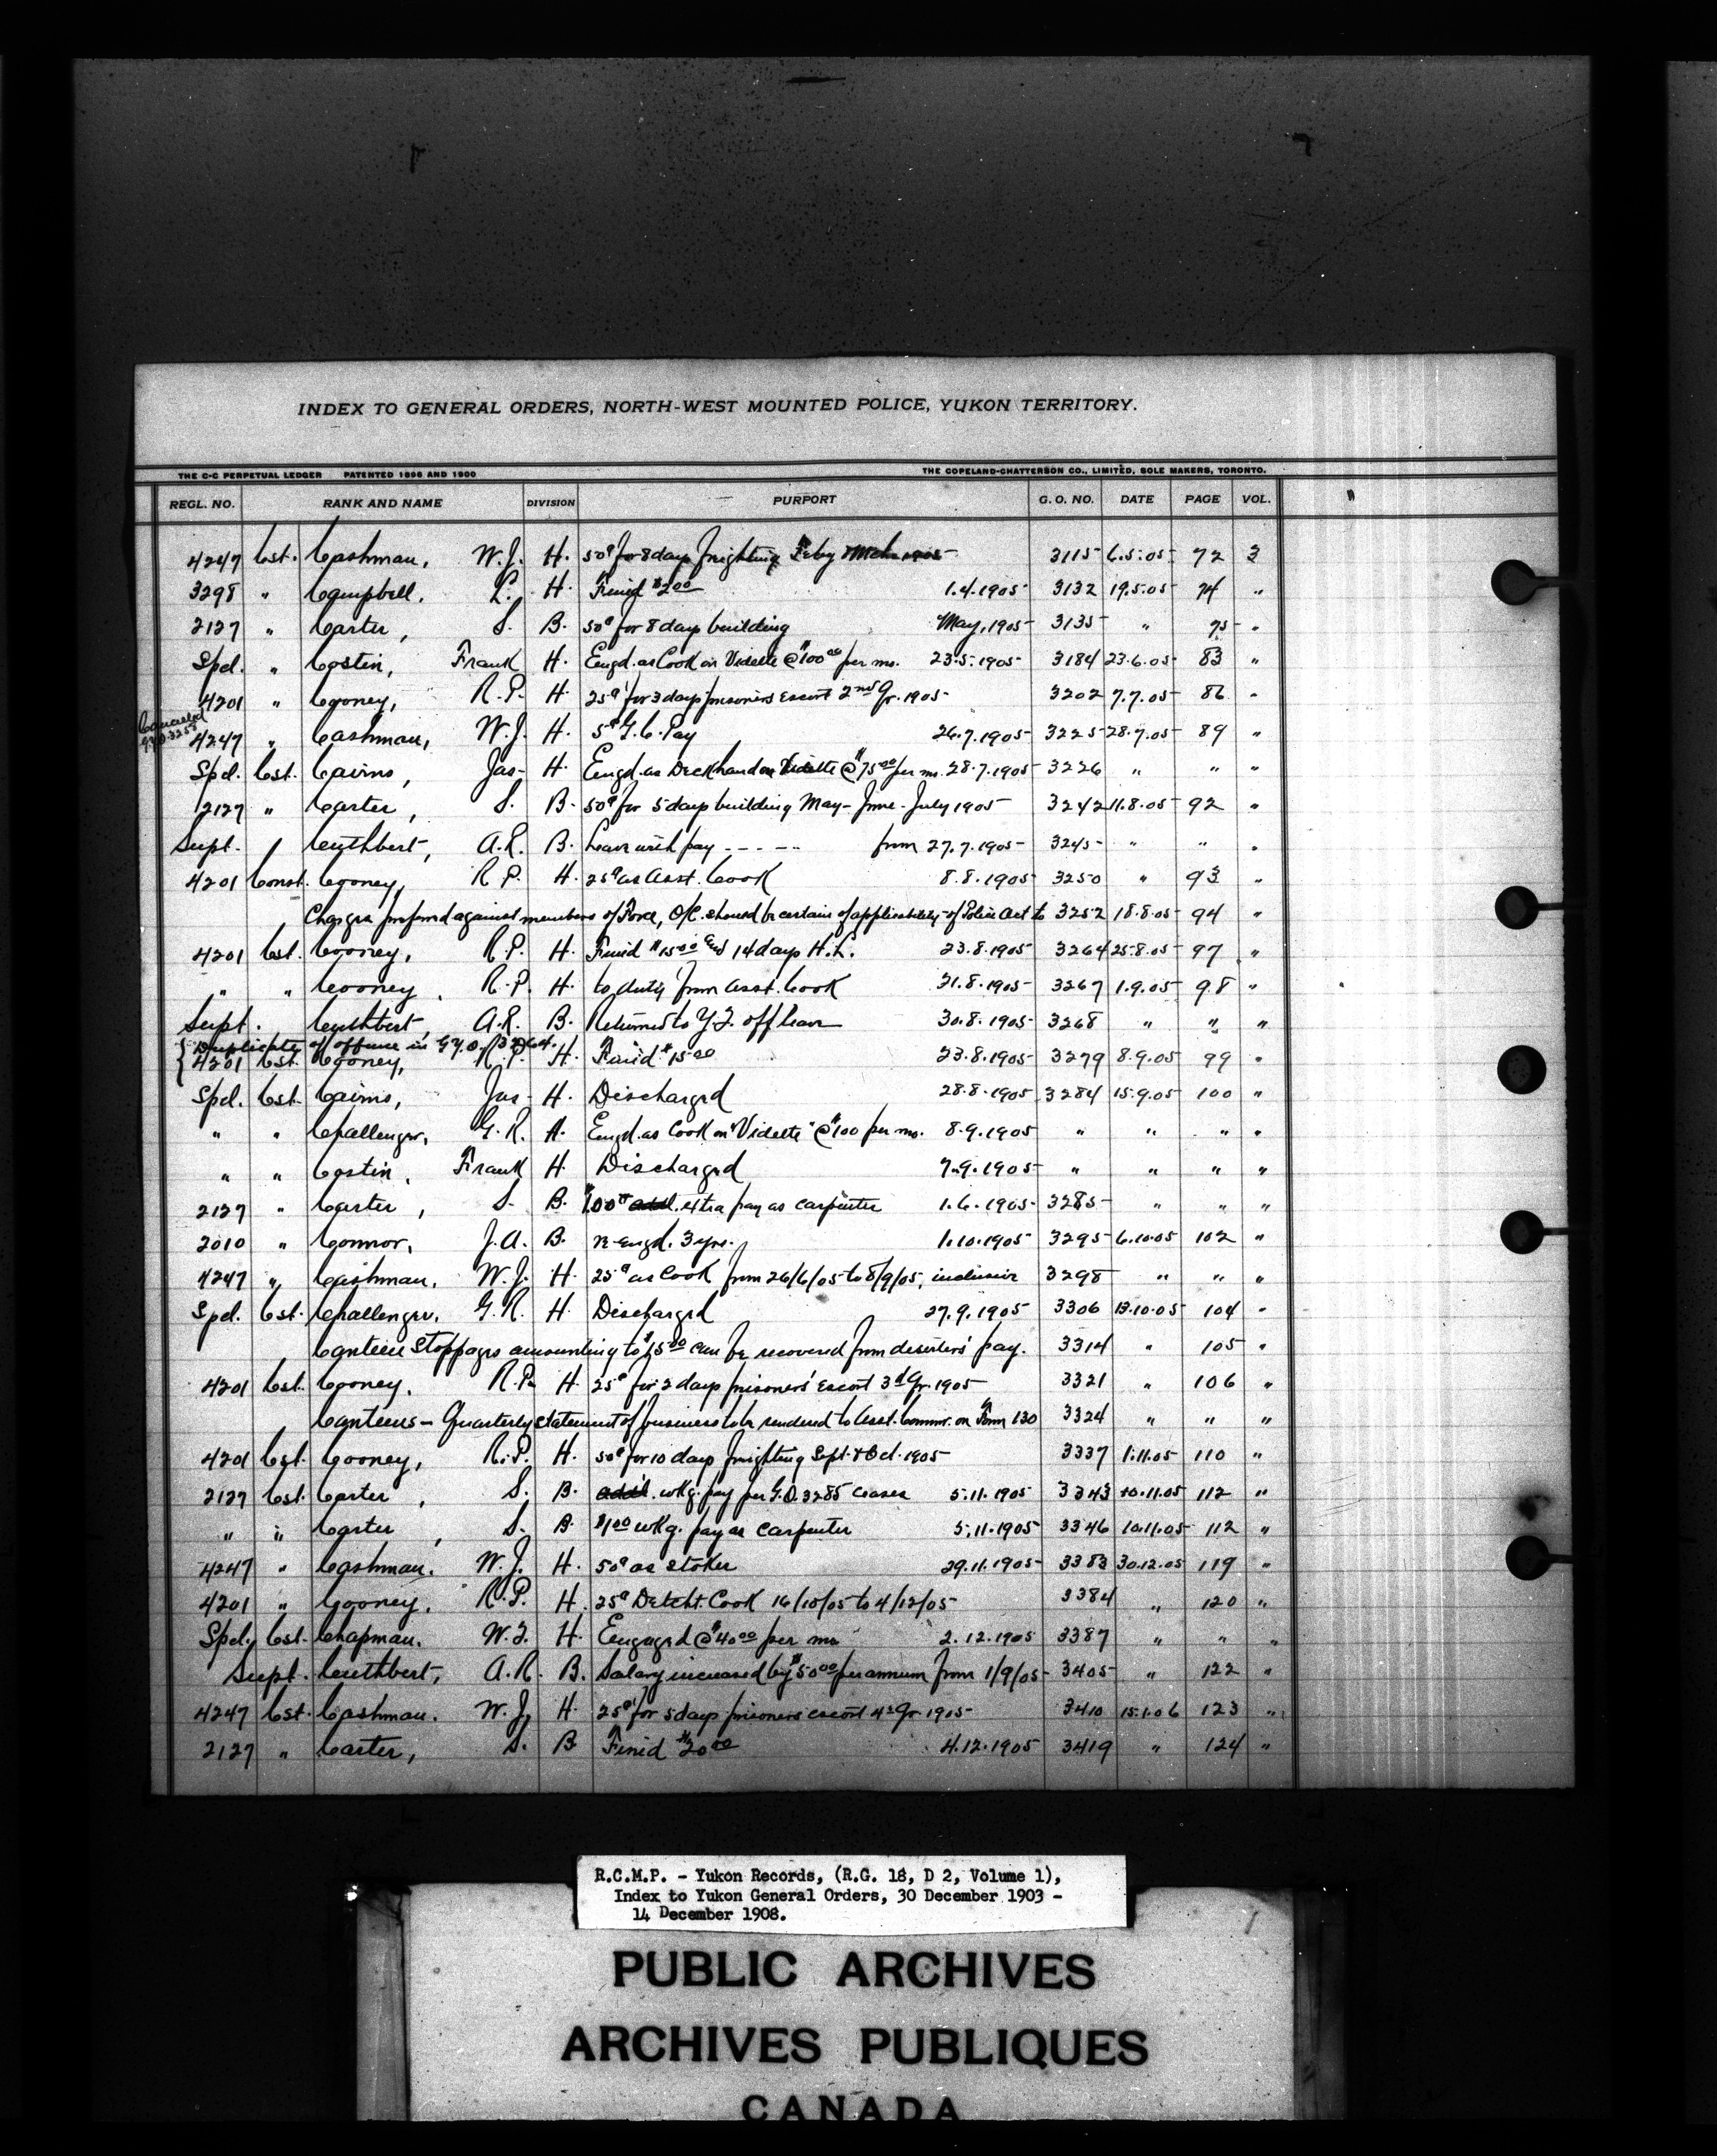 INDEX TO GENERAL ORDERS, NORTH-WEST MOUNTED POLICE, YUKON TERRITORY.
THE C-C PERPETUAL LEDGER PATENTED 1896 AND 1900 THE COPELAND-CHATTERSON CO., LIMITED, SOLE MAKERS, TORONTO.
REGL. NO. RANK AND NAME DIVISION PURPORT G. O. NO. DATE PAGE VOL.
4247 Cst. Cashman, W.J. H. 50¢ for 8 days freighting Feby 3115 6.5.05 72 3
3298 " Campbell, L. H. Fined $2.00 1.4.1905 3132 19.5.05 74 "
2127 " Carter, S. B. 50¢ for 8 days building May, 1905 3135 " 75 "
Spel. " Costin, Frank H. Engd. as Cook on Vidette @ $100.00 per mo. 23.5.1905 3184 23.6.05 83 "
4201 " Cooney, R.P. H. 25¢ for 3 days prisoners escort 2nd Qr. 1905 3202 7.7.05 86 "
Cancelled G.Y.O. 3258
4247 " Cashman, W.J. H. 5¢ G.C. Pay 26.7.1905 3225 28.7.05 89 "
Spel. Cst. Cairns, Jas. H. Engd. as Deckhand on Vidette @ $75.00 per mo. 28.7.1905 3226 " " "
2127 " Carter, S. B. 50¢ for 5 days building May - June - July 1905 3242 11.8.05 92 "
Supt. Cuthbert, A.R. B. Leave with pay ----- from 27.7.1905 3245 " " "
4201 Const. Cooney, R.P. H. 25¢ as Asst. Cook 8.8.1905 3250 " 93 "
Charges preferred against members of Force, O/C. should be certain of applicability of Police Act to 3252 18.8.05 94 "
4201 Cst. Cooney, R.P. H. Fined $15.00 and 14 days H.L. 23.8.1905 3264 25.8.05 97 "
" " Cooney, R.P. H. to duty from Asst. Cook 21.8.1905 3267 1.9.05 98 "
Supt. Cuthbert, A.R. B. Returned to Y.T. off leave 30.8.1905 3268 " " "
Duplicate of offence in G.Y.O. 3264.
4201 Cst. Cooney, R.P. H. Fined $15.00 23.8.1905 3279 8.9.05 99 "
Spel. Cst. Cairns, Jas. H. Discharged 28.8.1905 3284 15.9.05 100 "
" " Challenger, G.R. H. Engd. as Cook on "Vidette" @ $100 per mo. 8.9.1905 " " " "
" " Costin, Frank H. Discharged 7.9.1905 " " " "
2127 " Carter, S. B. $1.00 extra pay as carpenter 1.6.1905 3285 " " "
2010 " Connor, J.A. B. re-engd. 3 yrs. 1.10.1905 3295 6.10.05 102 "
4247 " Cashman, W.J. H. 25¢ as Cook from 26/6/05 to 8/9/05, inclusive 3298 " " "
Spel. Cst. Challenger, G.R. H. Discharged 27.9.1905 3306 13.10.05 104 "
Canteen Stoppages amounting to $15.00 can be recovered from deserters' pay. 3314 " 105 "
4201 Cst. Cooney, R.P. H. 25¢ for 2 days prisoners' escort 3rd Qr. 1905 3321 " 106 "
Canteens - Quarterly statement of business to be rendered to Asst. Commr. on Form 130 3324 " " "
4201 Cst. Cooney, R.P. H. 50¢ for 10 days freighting Sept. & Oct. 1905 3337 1.11.05 110 "
2127 Cst. Carter, S. B. wkg. pay per G.O. 3285 ceases 5.11.1905 3343 10.11.05 112 "
" " Carter, S. B. $1.00 wkg. pay as carpenter 5.11.1905 3346 10.11.05 112 "
4247 " Cashman, W.J. H. 50¢ as stoker 29.11.1905 3383 30.12.05 119 "
4201 " Cooney, R.P. H. 25¢ Detcht. Cook 16/10/05 to 4/12/05 3384 " 120 "
Spel. Cst. Chapman, W.T. H. Engaged @ $40.00 per mo. 2.12.1905 3387 " " "
Supt. Cuthbert, A.R. B. Salary increased by $50.00 per annum from 1/9/05 3405 " 122 "
4247 Cst. Cashman, W.J. H. 25¢ for 5 days prisoners escort 4th Qr. 1905 3410 15.1.06 123 "
2127 " Carter, S. B. Fined $20.00 4.12.1905 3419 " 124 "
R.C.M.P. - Yukon Records, (R.G. 18, D 2, Volume 1),
Index to Yukon General Orders, 30 December 1903 -
14 December 1908.
PUBLIC ARCHIVES
ARCHIVES PUBLIQUES
CANADA